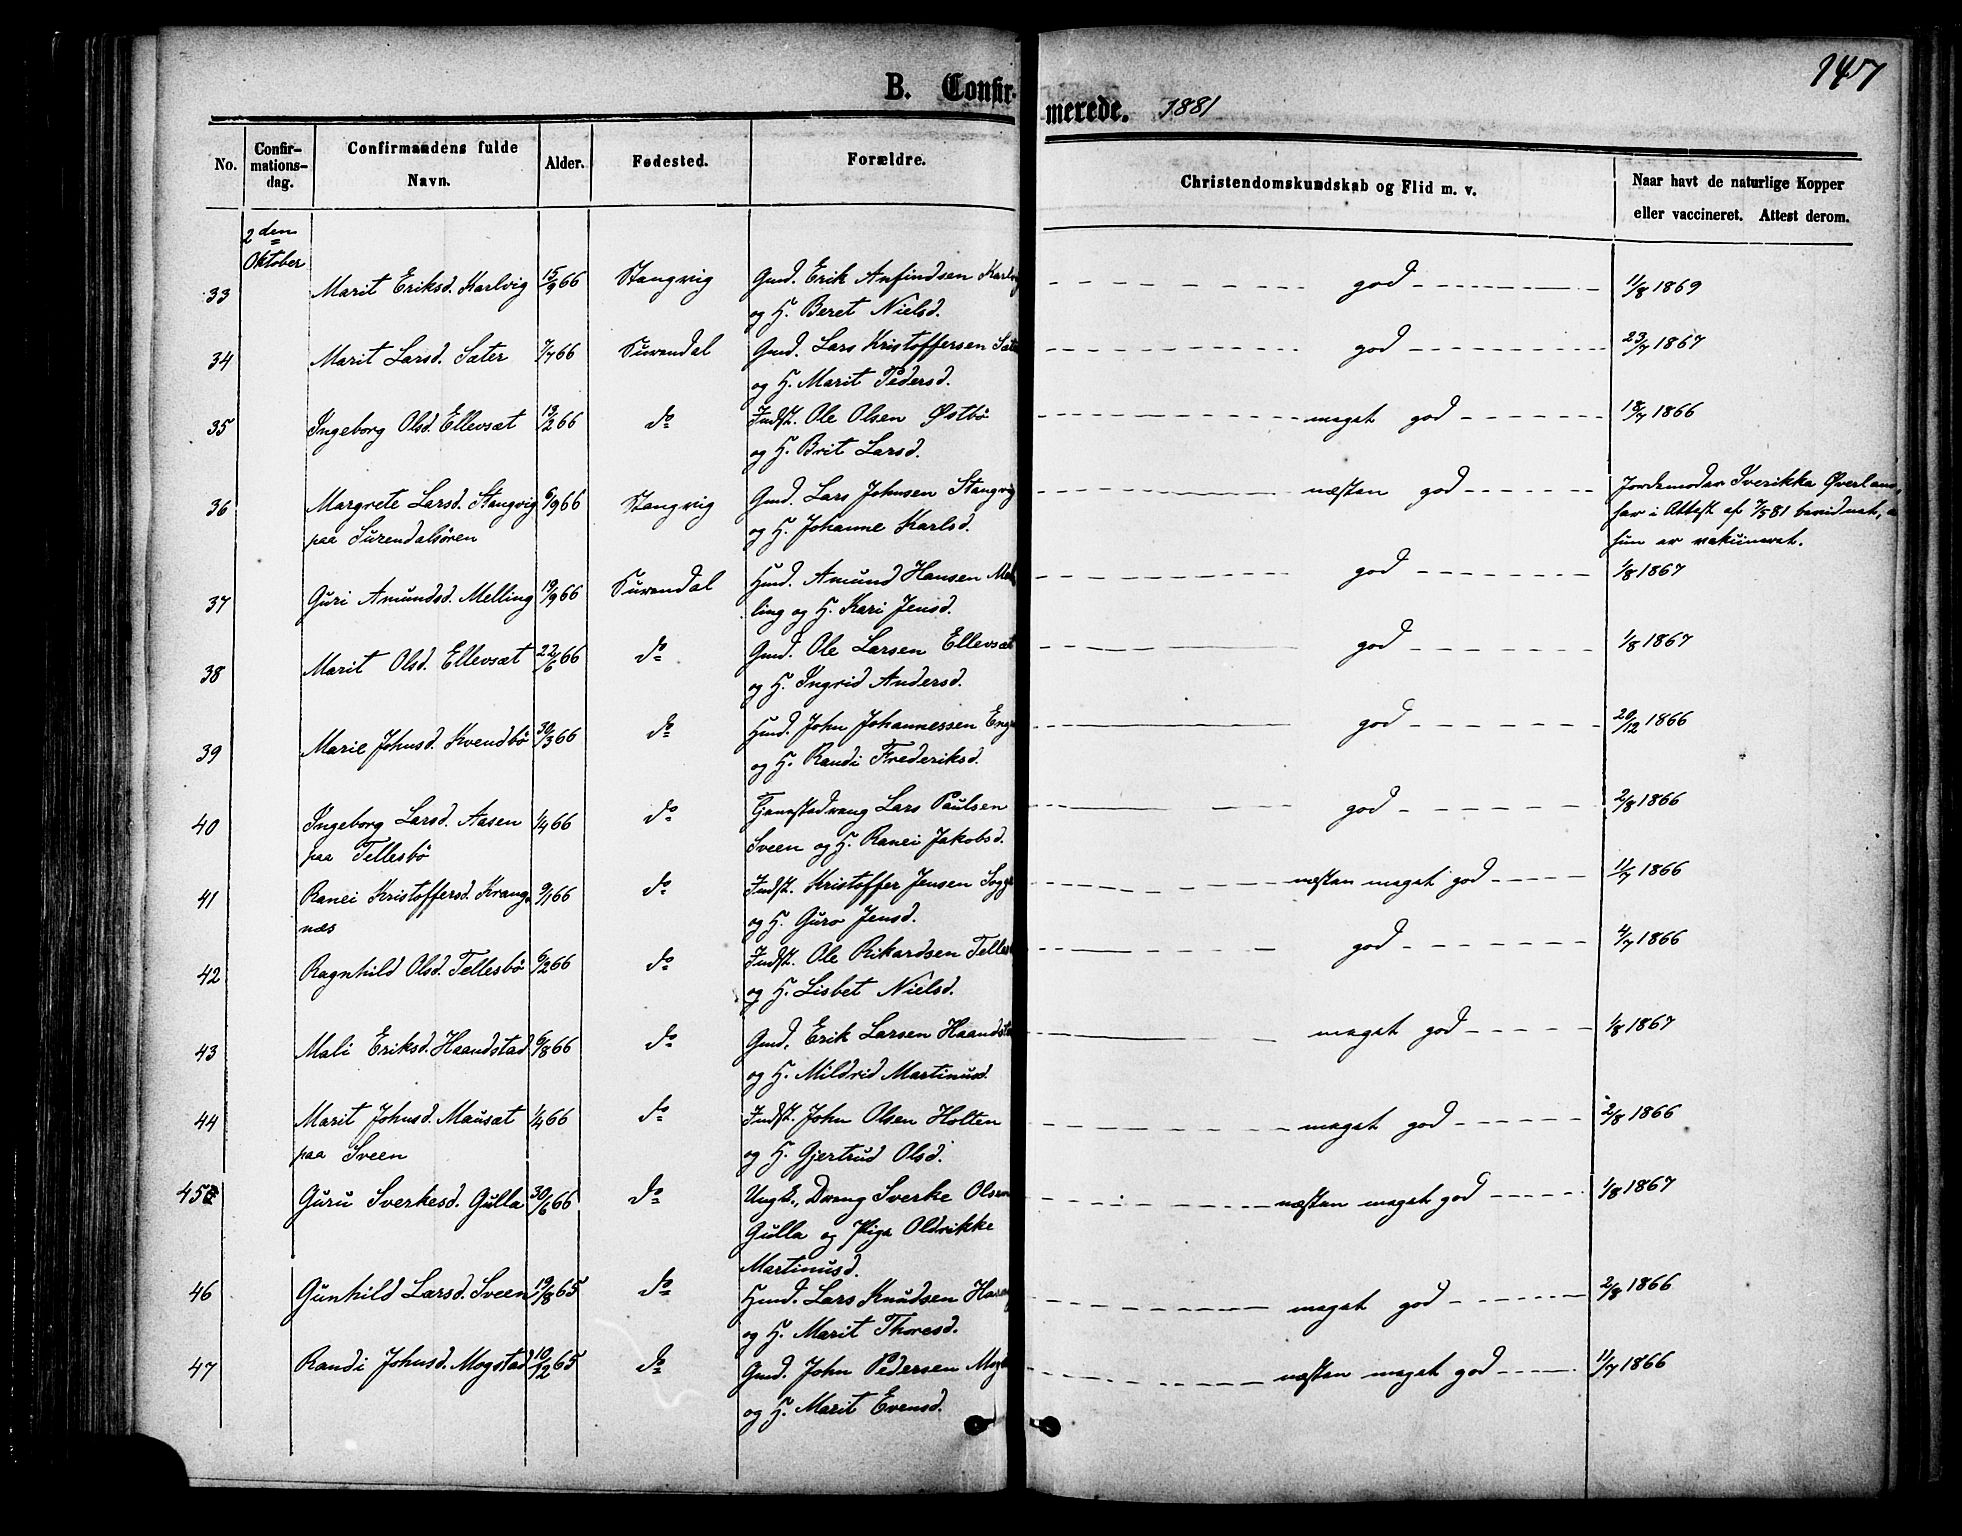 B. Confir-
merede. 1881
147
No.
Confir-
mations-
dag.
Confirmandens fulde
Navn.
Alder.
Fødested.
Forældre.
Christendomskundskab og Flid m. v.
Naar havt de naturlige Kopper
eller vaccineret. Attest derom.
2 den
Oktober
33 Marit Eriksd. Karlvig 15/9 66 Stangvig Gmd. Erik Anfindsen Karlvig god 11/8 1869
og H. Beret Nielsd.
34 Marit Larsd. Sæter 7/7 66 Surendal Gmd. Lars Kristoffersen Sæter god 23/7 1867
og H. Marit Pedersd.
35 Ingeborg Olsd. Ellevsæt 13/2 66 do Indst. Ole Olsen Østbö meget god 18/7 1866
og H. Brit Larsd.
36 Margrete Larsd. Stangvig 6/9 66 Stangvig Gmd. Lars Johnsen Stangvig næsten god Jordemoder Sverikka Øverland,
paa Surendalsören og H. Johanne Karlsd. har i Attest af 7/5 81 bevidnet,
hun er vakcineret.
37 Guri Amundsd. Melling 19/9 66 Surendal Hmd. Amund Hansen Mel god 1/8 1867
ling og H. Kari Jensd.
38 Marit Olsd. Ellevsæt 22/6 66 do Gmd. Ole Larsen Ellevsæt god 1/8 1867
og H. Ingrid Andersd.
39 Marie Johnsd. Kvendbö 30/3 66 do Hmd. John Johannessen Eng god 20/12 1866
og H. Randi Frederiksd.
40 Ingeborg Larsd. Aasen 1/4 66 do Tjenestedreng Lars Paulsen god 2/8 1866
paa Tellesbö Sveen og H. Ranei Jakobsd.
41 Ranei Kristoffersd. Krang 9/1 66 do Indst. Kristoffer Jensen Sogge næsten meget god 11/7 1866
næs og H. Guro Jensd.
42 Ragnhild Olsd. Tellesbö 6/2 66 do Indst. Ole Rikardsen Telles god 4/7 1866
og H. Lisbet Nielsd.
43 Mali Eriksd. Haandstad 6/8 66 do Gmd. Erik Larsen Haandsta meget god 1/8 1867
og H. Mildrid Martinusd.
44 Marit Johnsd. Mausæt 1/4 66 do Indst. John Olsen Holten meget god 2/8 1866
paa Sveen og H. Gjertrud Olsd.
45 Guru Sverkesd. Gulla 30/6 66 do Ungk., Dreng Sverke Olsen næsten meget god 1/8 1867
Gulla og Pige Oldrikke
Martinusd.
46 Gunhild Larsd. Sveen 19/8 65 do Hmd. Lars Knudsen meget god 2/8 1866
og H. Marit Thoresd.
47 Randi Johnsd. Mogstad 10/12 65 do Gmd. John Pedersen Mog næsten meget god 11/7 1866
og H. Marit Evensd.